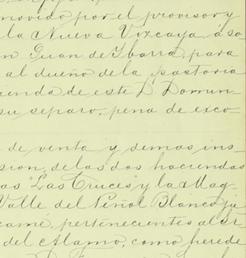 movido por el provisor y
la Nueva Vizcaya a so
n Juan de Ybarra, para
al dueño de la pastoria
enda de este D. Domin
su separo, pena de exco
de venta y demas ins
sion, de las dos haciendas
as "Las Cruces" y la Mag
Valle del Peñol Blanco ju
camé, pertenecientes al sr
del Alamo, como herede